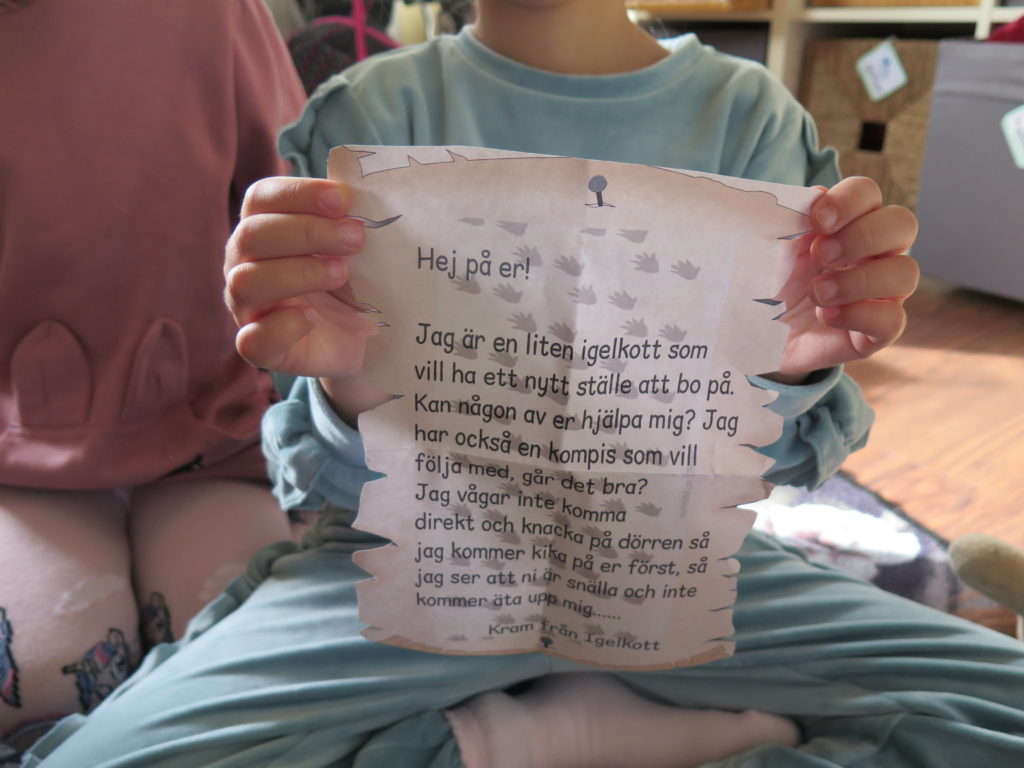 Hej på er!
Jag är en liten igelkott som
vill ha ett nytt ställe att bo på.
Kan någon av er hjälpa mig? Jag
har också en kompis som vill
följa med, går det bra?
Jag vågar inte komma
direkt och knacka på dörren så
jag kommer kika på er först, så
jag ser att ni är snälla och inte
kommer äta upp mig......
Kram från Igelkott